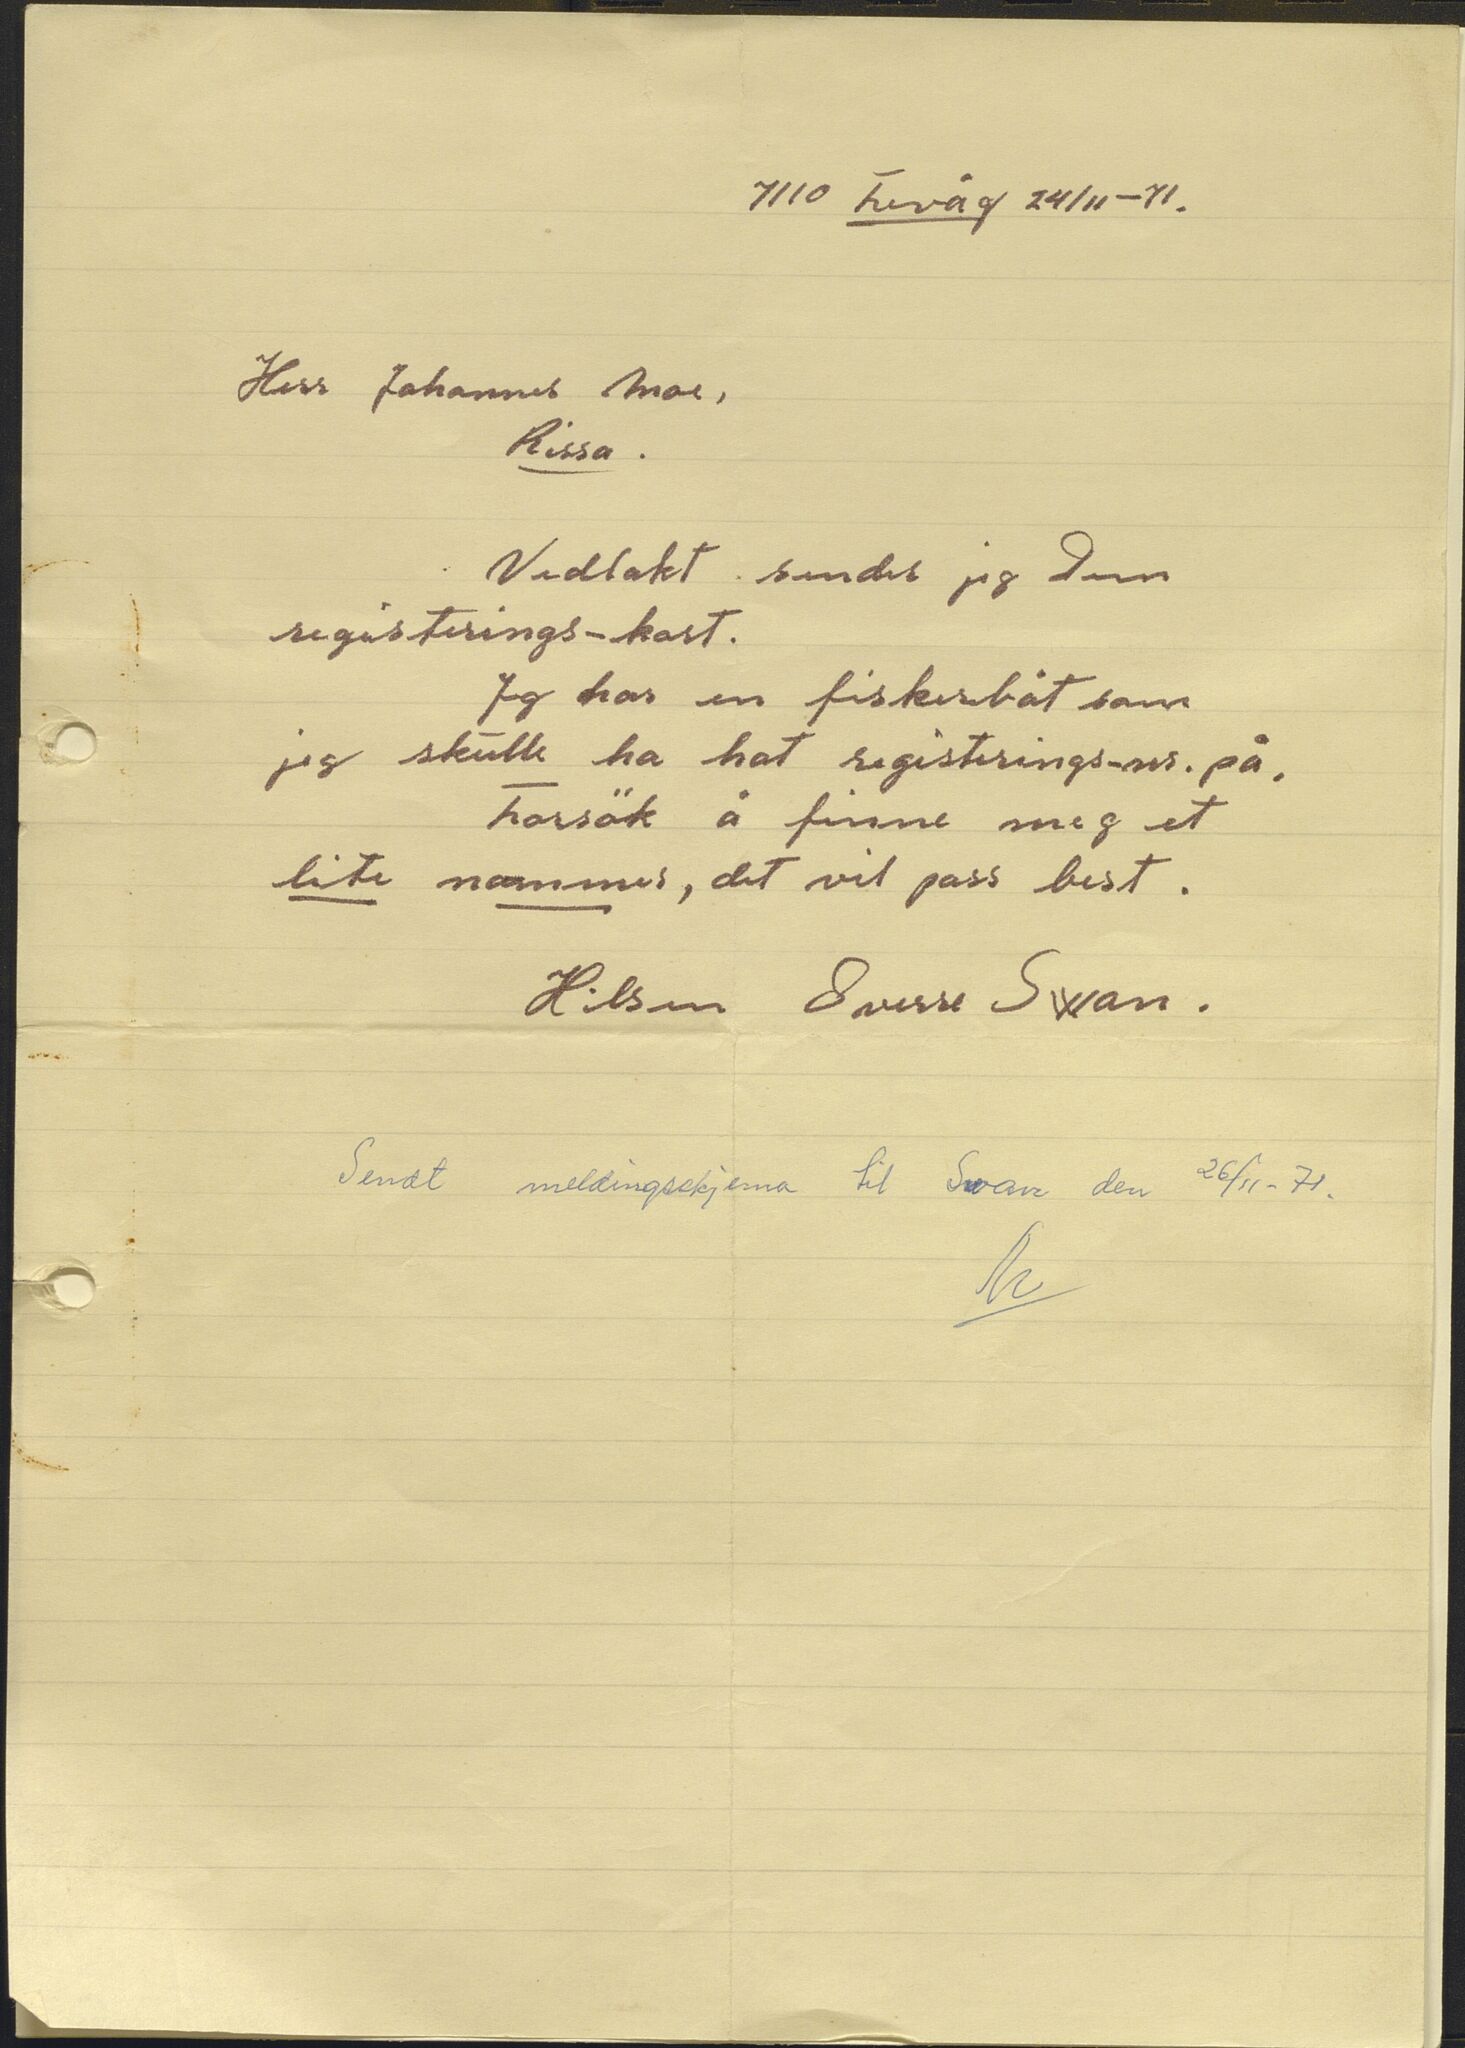 7110 Fevåg 24/11-71.
Herr Johannes Moe,
Rissa.
Vedlakt sender jeg Dem
registerings-kort.
Jeg har en fiskerbåt som
jeg skulle ha hat registerings-nr. på.
Forsök å finne meg et
lite nommer, det vil pass best.
Hilsen Sverre Swan.
Sendt meldingsskjema til Swan den 26/11-71.